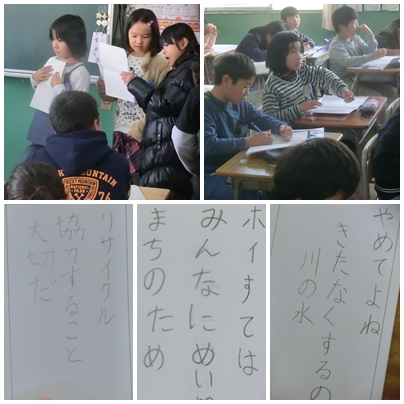 ROCKY MOUNTAIN
NATIONAL PARK
76
リサイクル
協力すること
大切だ
ポイすては
みんなにめい
まちのため
やめてよね
きたなくするの
川の水